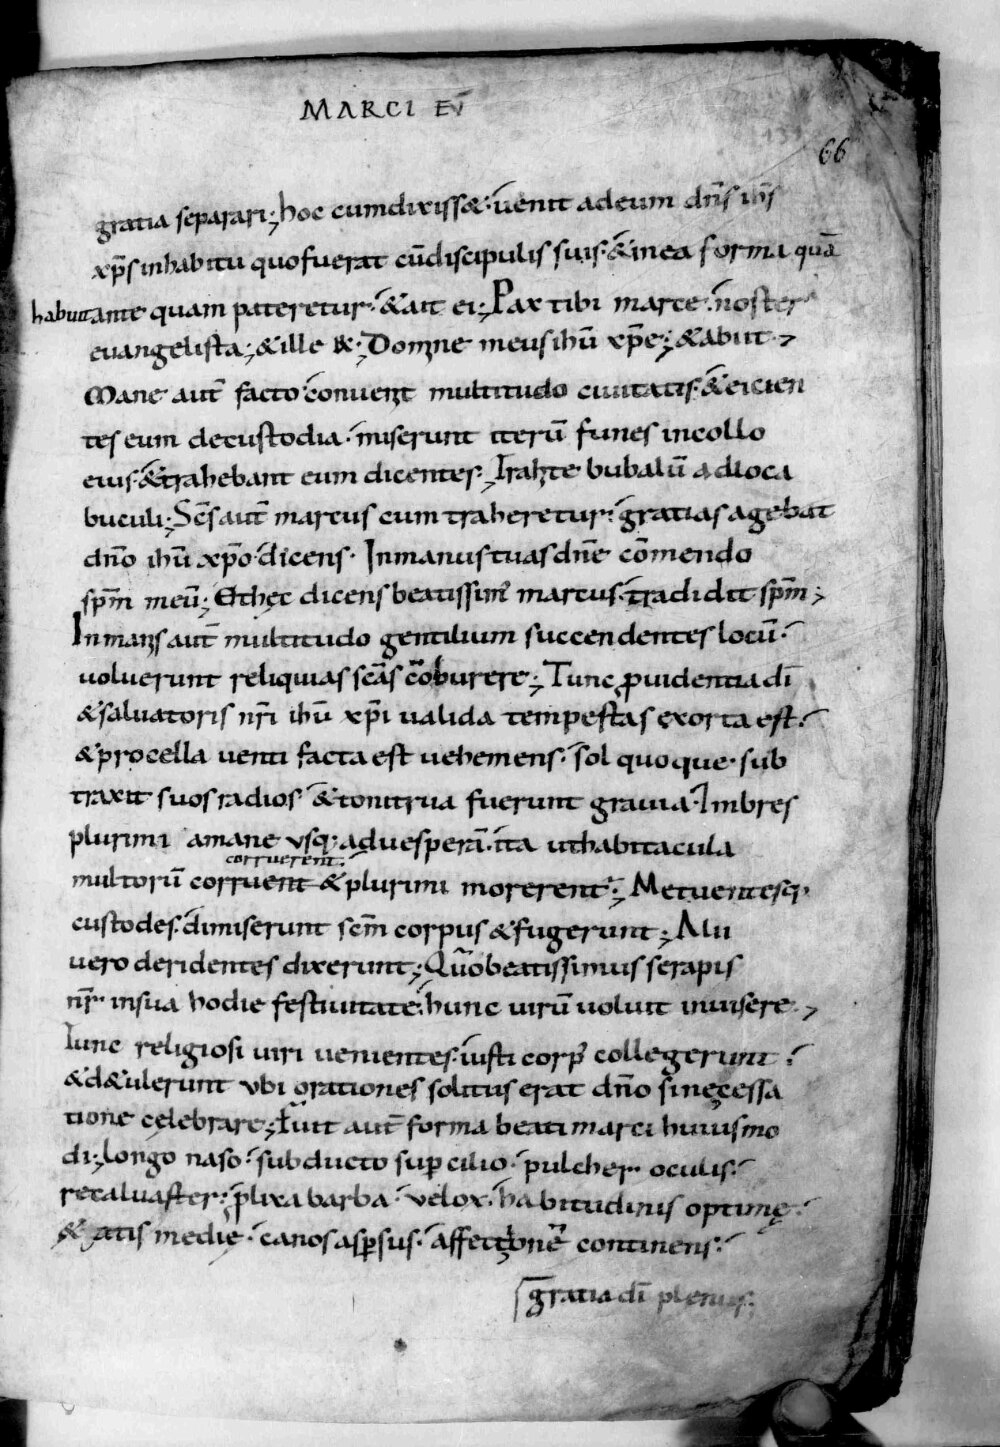 MARCI EV̄
66
gratia separari; hoc cumdixiss&. uenit adeum dn̄s ih̄s
xp̄s inhabitu quofuerat cū discipulis suis. & inea forma quā
habuit ante quam pateretur. & ait ei; Pax tibi marce. noster
euangelista; & ille &; Domne meus ihū xp̄e; & abiit.
Mane aut̄ facto conuenit multitudo ciuitatis. & eicien
tes eum decustodia. miserunt iterū funes incollo
eius. & trahebant eum dicentes. Trahite bubalū adloca
buculi; Sc̄s aut̄ marcus cum traheretur. gratias agebat
dn̄o ihū xp̄o. dicens. Inmanus tuas dn̄e cōmendo
sp̄m meū; Ethęc dicens beatissim' marcus. tradidit sp̄m;
Inmanis aut̄ multitudo gentilium succendentes locū.
uoluerunt reliquias sc̄as cōburere; Tunc ꝓuidentia dī
& saluatoris nr̄i ihū xp̄i ualida tempestas exorta est.
& procella uenti facta est uehemens. sol quoque. sub
traxit suos radios. & tonitrua fuerunt grauia. Imbres
plurimi amane usq; aduesperā. ita uthabitacula
corruerent.
multorū corruent & plurimi morerent'; Metuentesq;
custodes. dimiserunt sc̄m corpus & fugerunt; Alii
uero deridentes dixerunt; Qm̄ beatissimus serapis
nr̄ insua hodie festiuitate. hunc uirū uoluit inuisere.
Tunc religiosi uiri uenientes. iusti corp' collegerunt.
& d&ulerunt ubi orationes solitus erat dn̄o sinecessa
tione celebrare; Fuit aut̄ forma beati marci huiusmo
di; longo naso. subducto suꝑcilio. pulcher oculis.
recaluaster. ꝓlixa barba. uelox. habitudinis optimę.
& ætatis medię. canos asꝑsus. affectione continens.
gratia dī plenus;